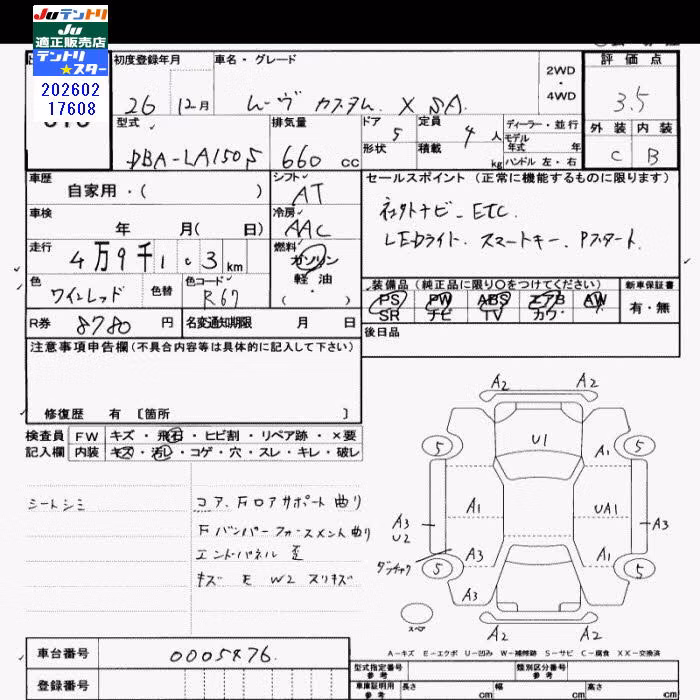 Juテントリ
Ju
適正販売店
テントリ
★スター
202602
17608
初度登録年月
車名・グレード
2WD
・
4WD
評価点
26
12月
ムーヴ カスタム X SA
3.5
型式
排気量
ドア
定員
ディーラー・並行
外装
内装
5
4 人
モデル
年式 年
形状
積載
kg
ハンドル 左・右
DBA-LA150S
660 cc
C
B
車歴
シフト
セールスポイント (正常に機能するものに限ります)
自家用・( )
AT
車検
冷房
ネクストナビ ETC
年 月( 日)
AAC
LEDライト. スマートキー. Pスタート.
走行
燃料
4万9千1c3km
ガソリン
軽油
( ・ )
色
色替
色コード
装備品 (純正品に限り〇をつけてください)
新車保証書
ワインレッド
R67
PS
PW
ABS
エアB
AW
有・無
SR
ナビ
TV
カワ
R券
8780 円
名変通知期限
月 日
後日品
注意事項申告欄(不具合内容等は具体的に記入して下さい)
修復歴 有 [箇所 ]
検査員
FW
キズ・飛石・ヒビ割・リペア跡・×要
記入欄
内装
キズ・汚レ・コゲ・穴・スレ・キレ・破レ
シートシミ
コア.Fロアサポート曲り
Fバンパーフォースメント曲り
エンドパネル 歪
キズ E W2 スリキズ
A2
A2
5
U1
5
A1
A1
UA1
A3
U2
A3
A3
A1
ダンチャク
5
5
A3
スペア
A2
A2
A-キズ E-エクボ U-凹み W-補修跡 S-サビ C-腐食 XX-交換済
車台番号
0005876
登録番号
型式指定番号
参考
類別区分番号
参考
車庫証明用
参考
長さ
cm
幅
cm
高さ
cm